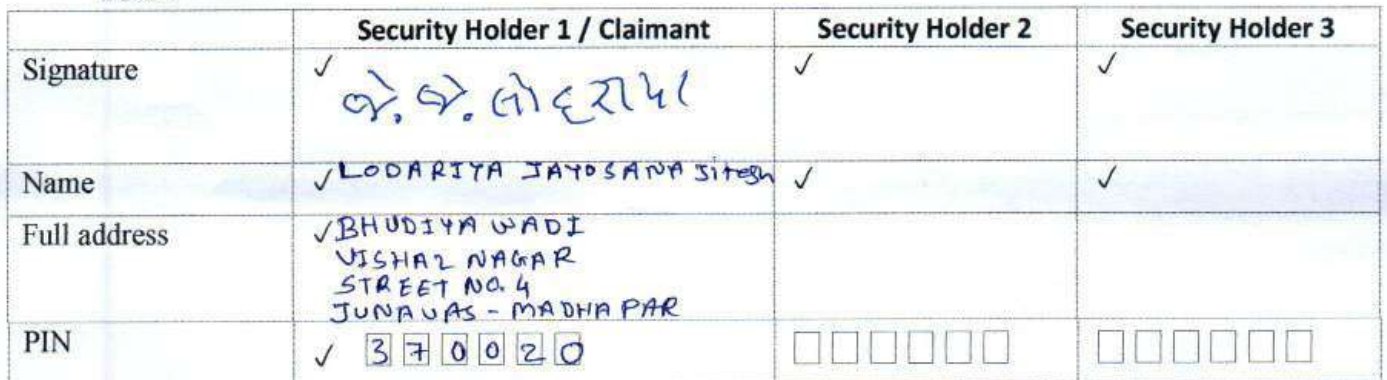 Security Holder 1 / Claimant Security Holder 2 Security Holder 3
Signature ✓ જે. જે. લોદરીયા ✓ ✓
Name ✓ LODARIYA JAYOSANA Jitesh ✓ ✓
Full address ✓ BHUDIYA WADI
VISHAL NAGAR
STREET NO. 4
JUNAVAS - MADHAPAR
PIN ✓ 370020